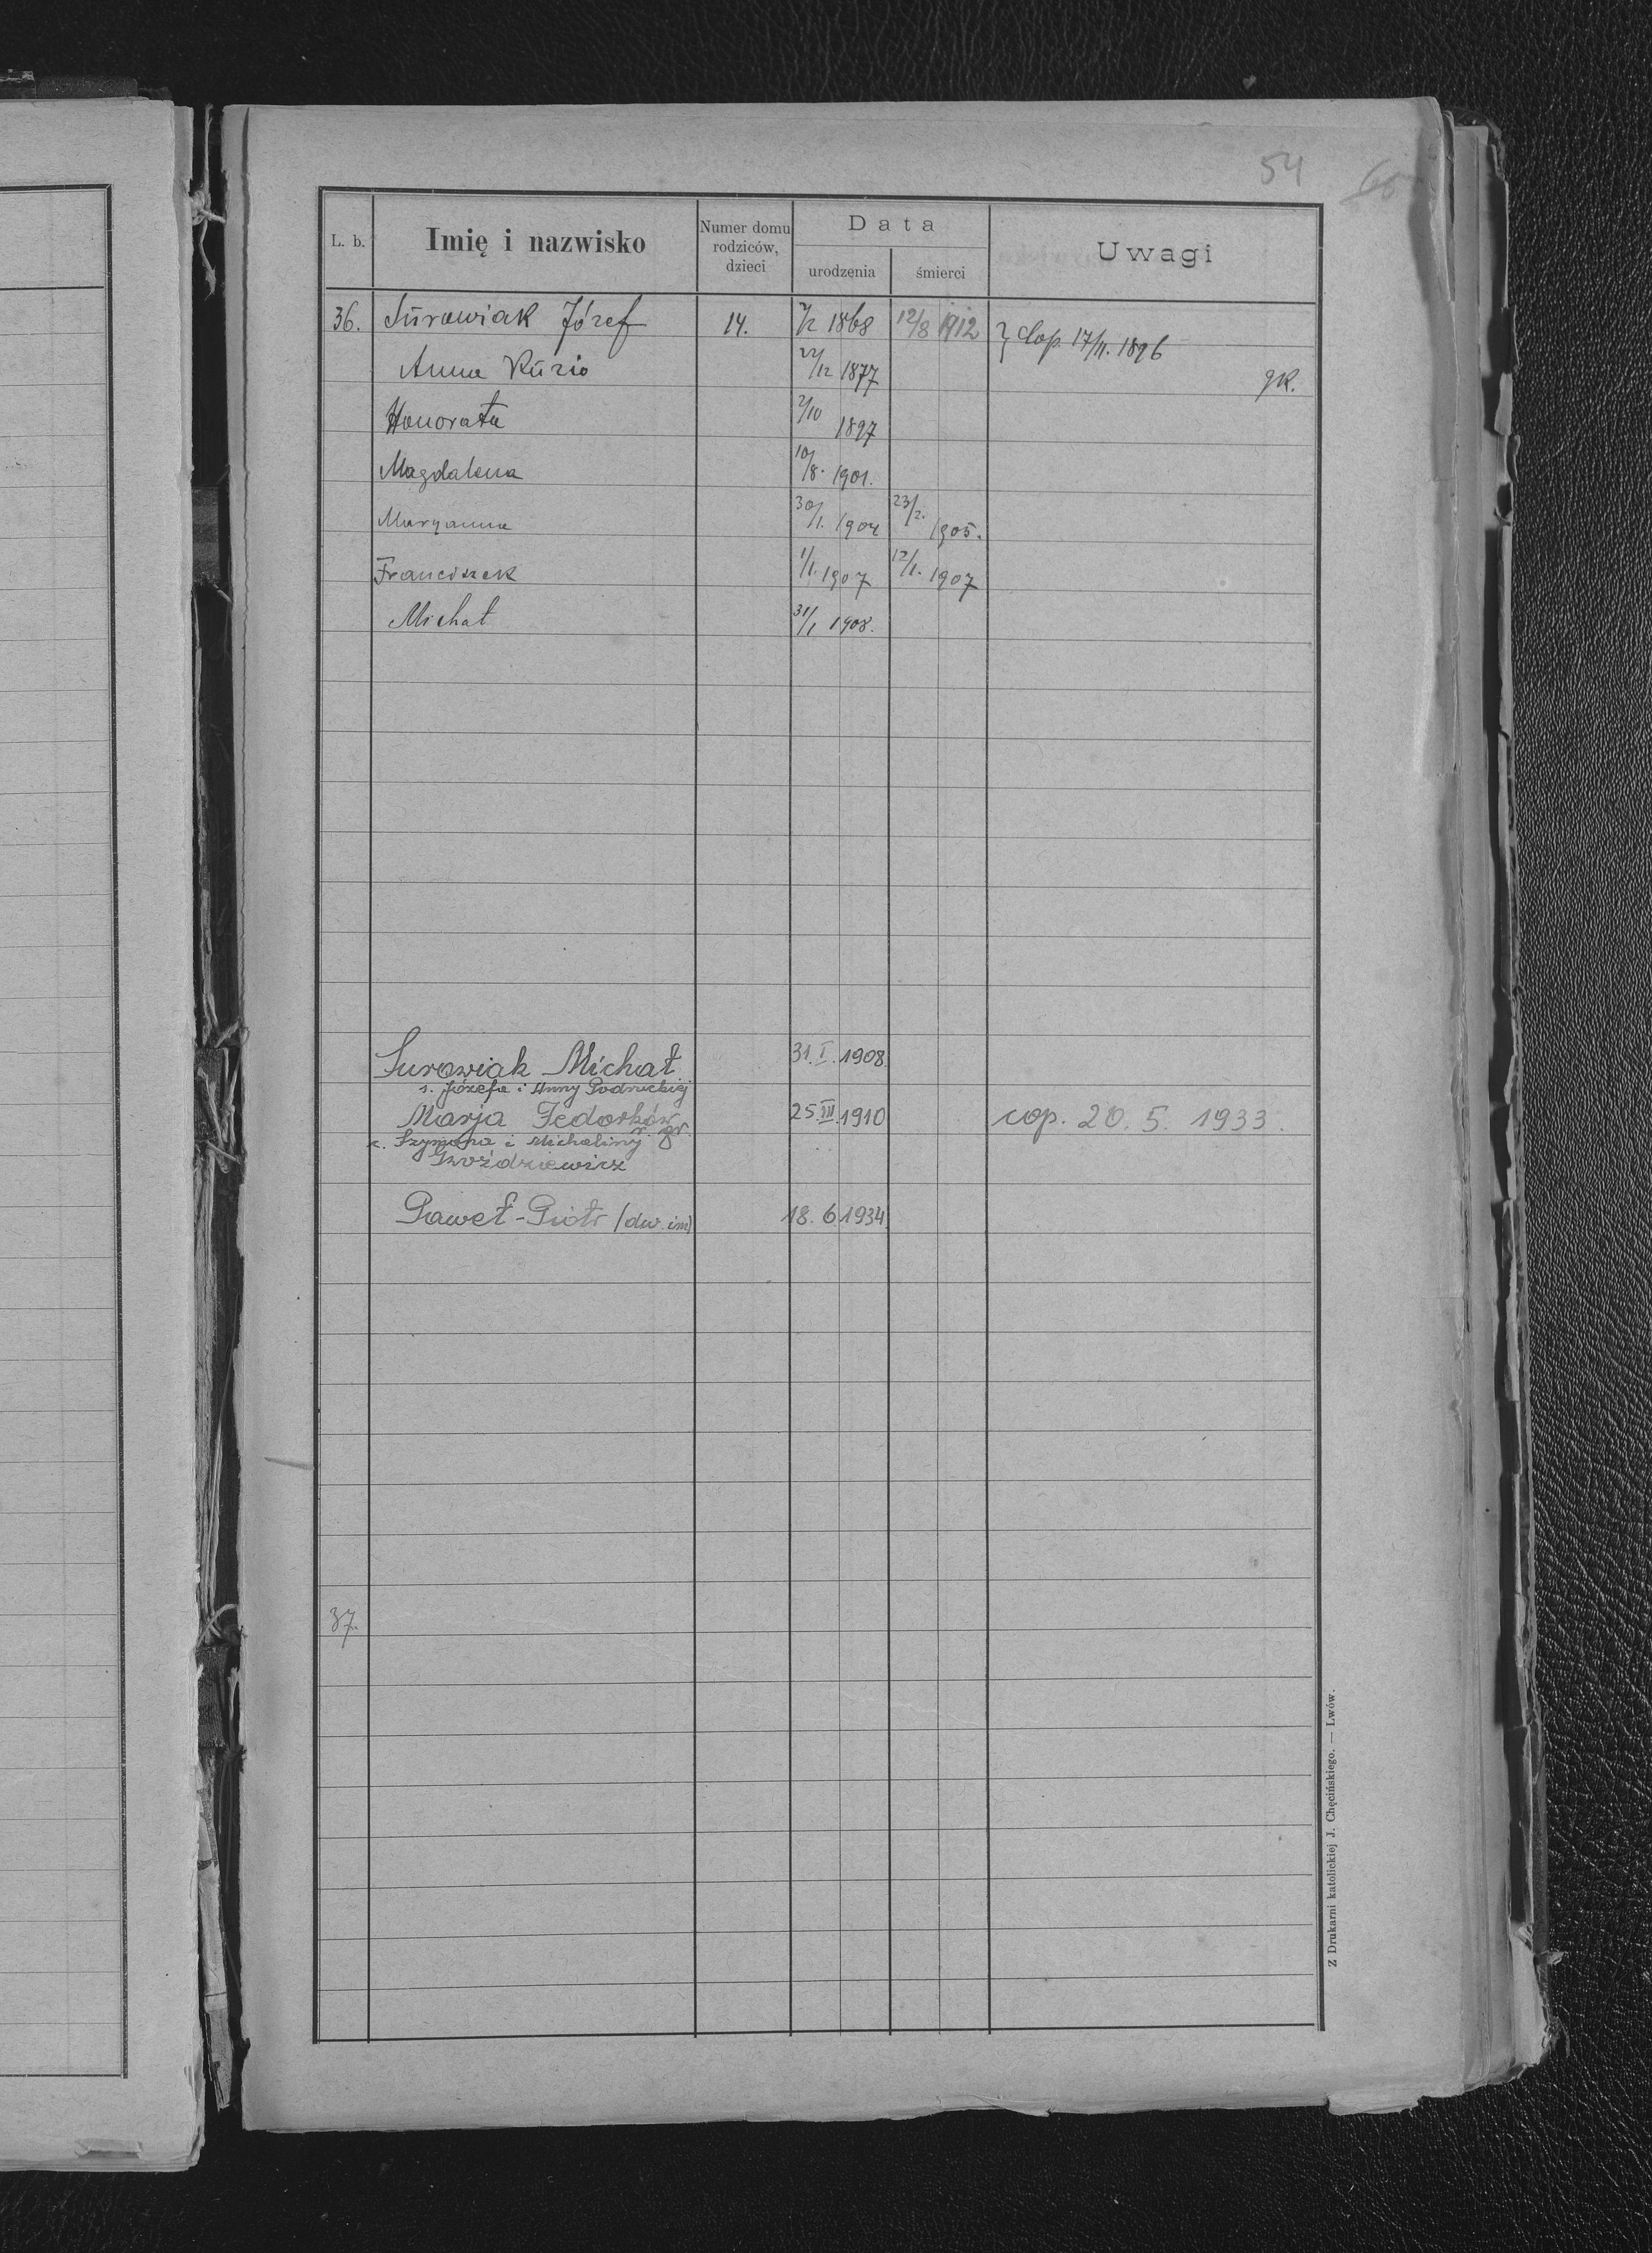 54
L. b.
Imię i nazwisko
Numer domu
rodziców,
dzieci
Data
urodzenia
śmierci
Uwagi
36. Sūrowiak Józef 14. 1868 12/8 1912 Cop. 17/11. 1896
Anna Kūzio 1877 gk.
Honorata 2/10 1897
Magdalena 10/8. 1901.
Maryanna 30/1. 1904 23/2. 1905.
Franciszek 1/1. 1907 12/1. 1907
Michał 31/1 1908.
Surowiak Michał 31. I. 1908.
s. Józefa i Anny
Marja Fedorków 25. III. 1910 cop. 20. 5. 1933.
c. Szymona i Michaliny
Gwoździewicz
Paweł-Piotr /dw. im) 18. 6 1934.
37.
Z Drukarni katolickiej J. Chęcińskiego. — Lwów.